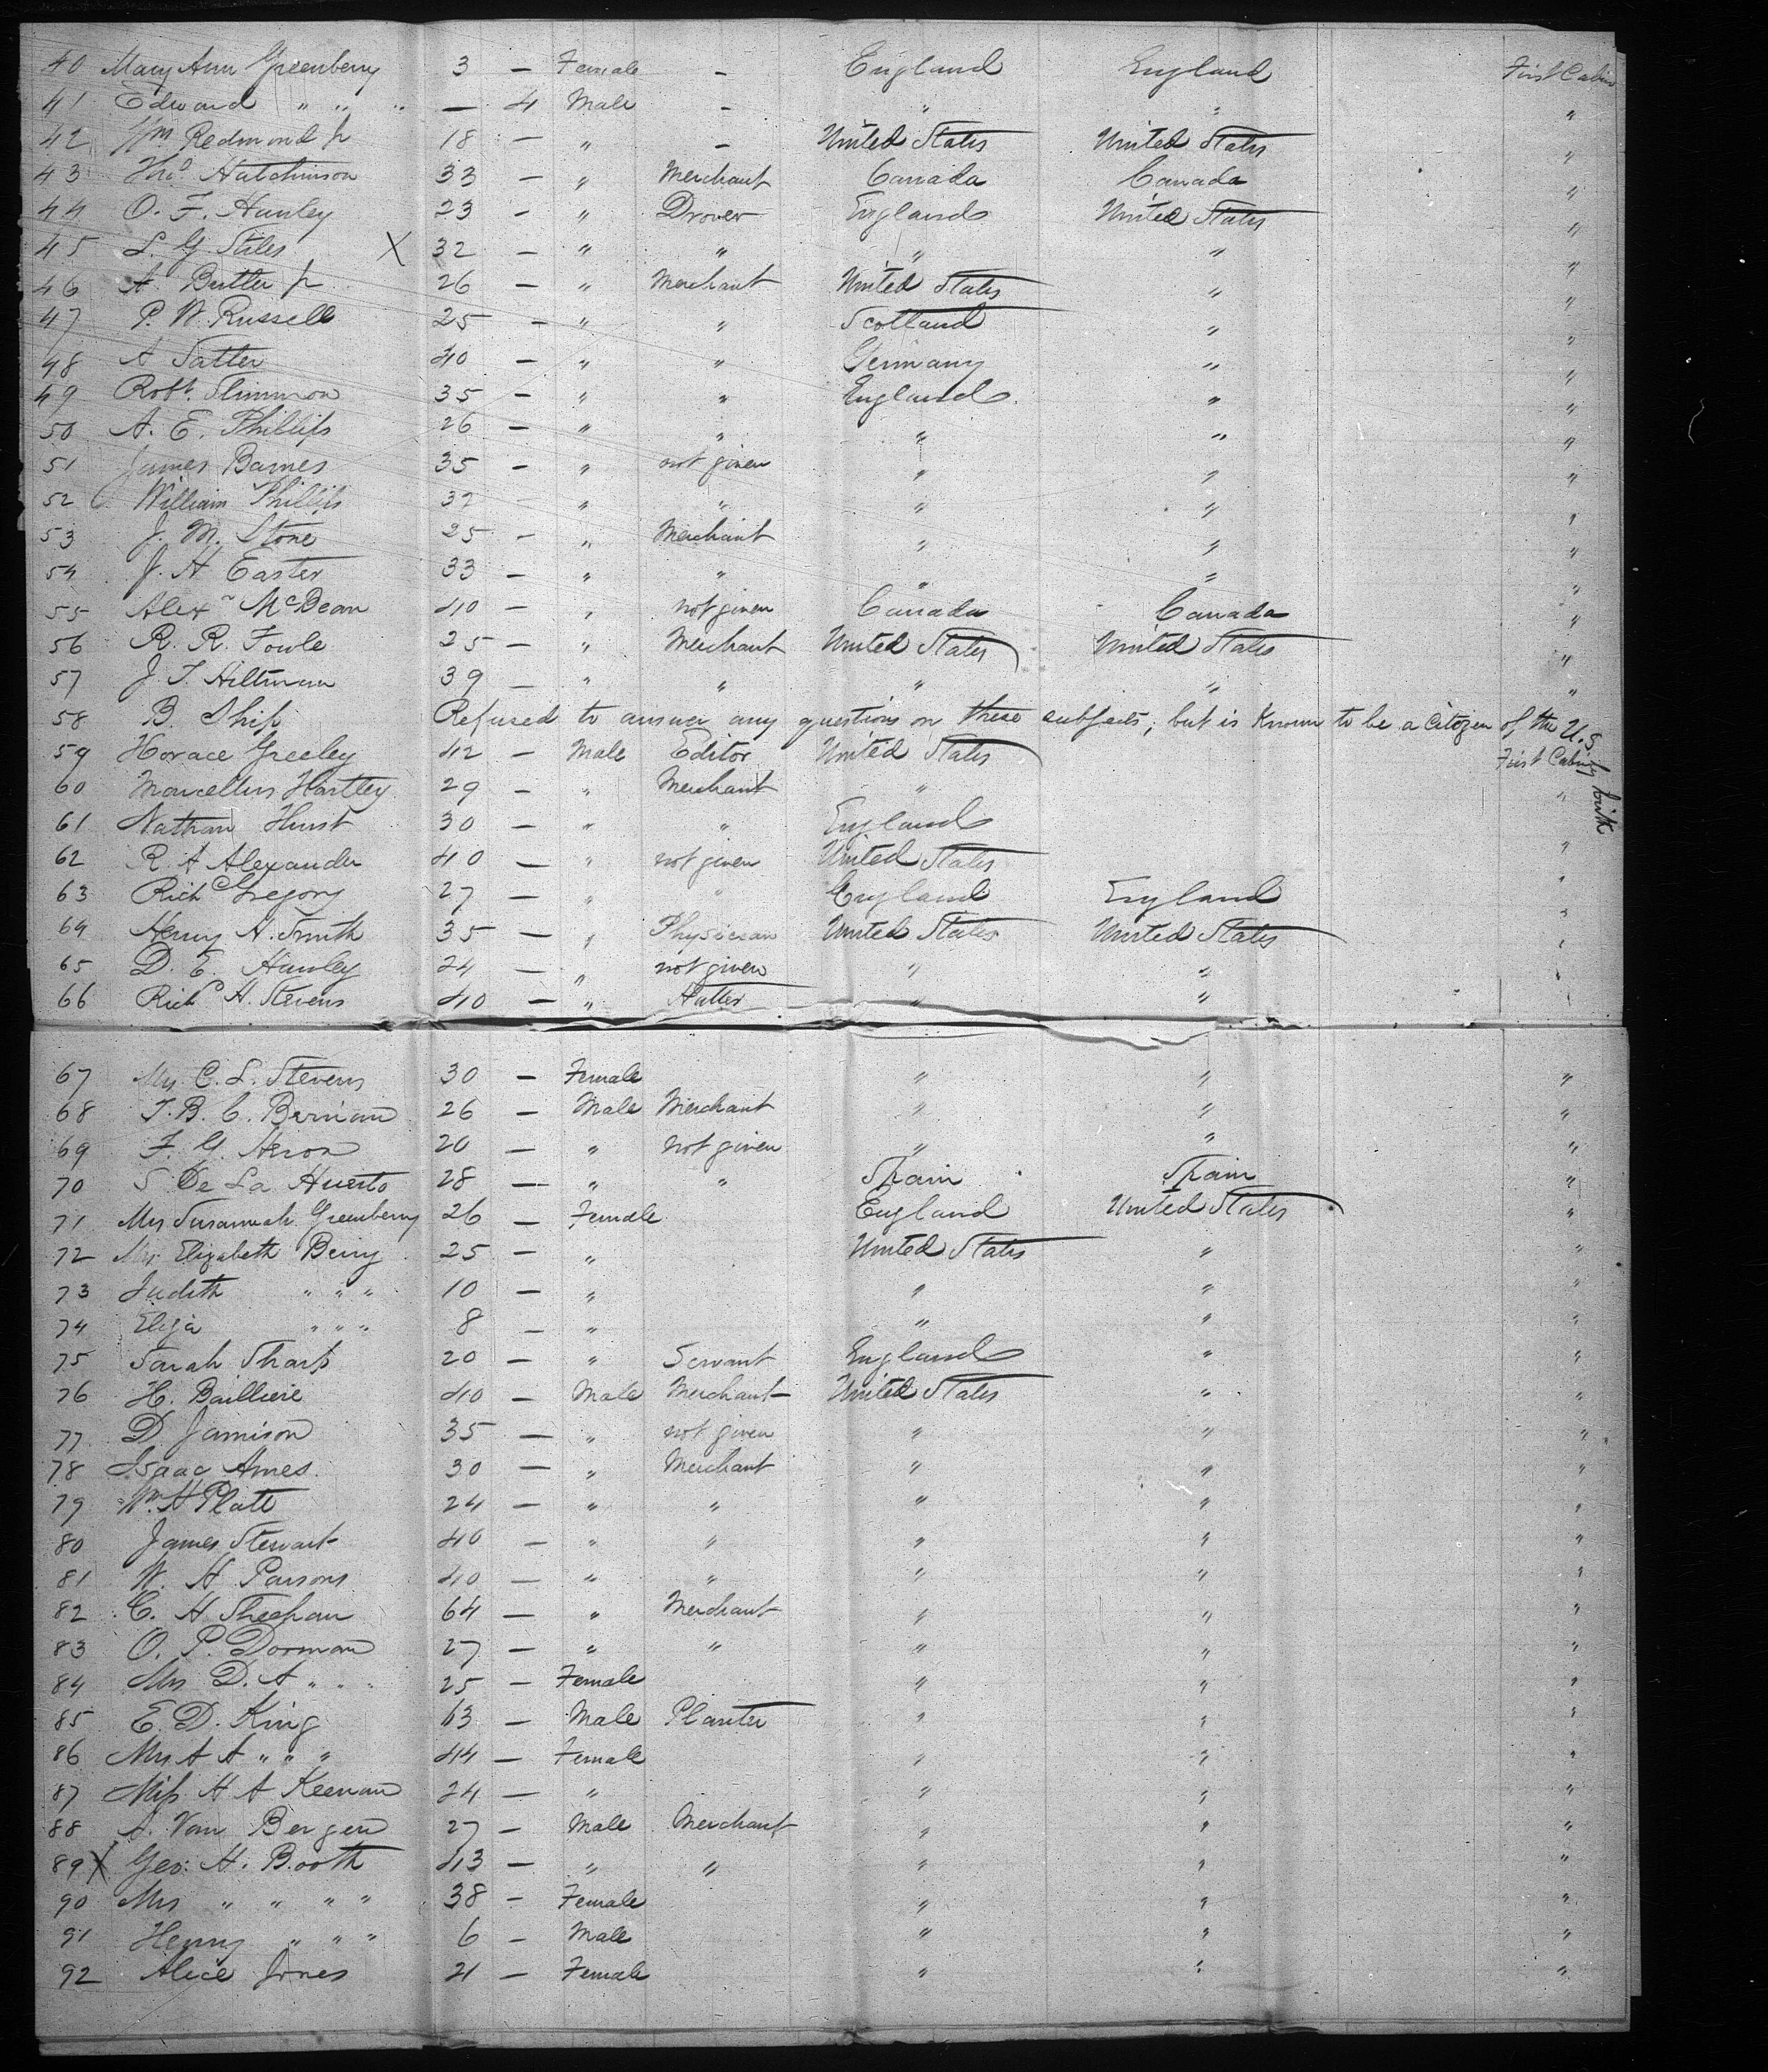 40 Mary Ann Greenberry 3 — Female - England England First Cabin
41 Edward " " " — 4 Male - " " "
42 Wm Redmond Jr 18 — " - United States United States "
43 Thos Hutchinson 33 — " Merchant Canada Canada "
44 O. F. Hunley 23 — " Drover England United States "
45 L. G. Stiles X 32 — " " " " "
46 A. Butler Jr 26 — " Merchant United States " "
47 P. W. Russell 25 — " " Scotland " "
48 A Satter 40 — " " Germany " "
49 Robt. Slimmon 35 — " " England " "
50 A. E. Phillips 26 — " " " " "
51 James Barnes 35 — " not given " " "
52 William Phillips 32 — " " " " "
53 J. M. Stone 25 — " Merchant " " "
54 J. H Easter 33 — " " " " "
55 Alexr McBean 40 — " not given Canada Canada "
56 R. R. Fowle 25 — " Merchant United States United States "
57 J. T. Hiltman 39 — " " " " "
58 B. Ship Refused to answer any questions on these subjects, but is known to be a Citizen of the U.S. by birth
59 Horace Greeley 42 — Male Editor United States First Cabin
60 Marcellus Hartley 29 — " Merchant " "
61 Nathan Hurst 30 — " " England
62 R. A Alexander 40 — " not given United States "
63 Richd Gregory 27 — " " England England "
64 Henry H. Smith 35 — " Physician United States United States "
65 D. E. Hunley 24 — " not given " " "
66 Richd H. Stevens 40 — " Hatter " " "
67 Mrs C. L. Stevens 30 — Female " " "
68 T. B. C. Berrian 26 — Male Merchant " " "
69 F. G. Heron 20 — " not given " " "
70 S De La Huerto 28 — " " Spain Spain "
71 Mrs Susannah Greenberry 26 — Female England United States "
72 Mrs Elizabeth Berry 25 — " United States " "
73 Judith " " " 10 — " " " "
74 Eliza " " " 8 — " " " "
75 Sarah Sharp 20 — " Servant England " "
76 H. Bailliere 40 — Male Merchant United States " "
77 D. Jamison 35 — " not given " " "
78 Isaac Ames 30 — " Merchant " " "
79 Wm H Platt 24 — " " " " "
80 James Stewart 40 — " " " " "
81 W. H Parsons 40 — " " " " "
82 C. H Shephan 64 — " Merchant " " "
83 O. P. Dorman 27 — " " " " "
84 Mrs D. A " " " 25 — Female " " "
85 E. D. King 63 — Male Planter " " "
86 Mrs A A " " " 44 — Female " " "
87 Miss H A Keenan 24 — " " " "
88 A. Van Bergen 27 — Male Merchant " " "
89 X Geo: H. Booth 43 — " " " " "
90 Mrs " " " " 38 — Female " " "
91 Henry " " " 6 — Male " " "
92 Alice Jones 21 — Female " " "